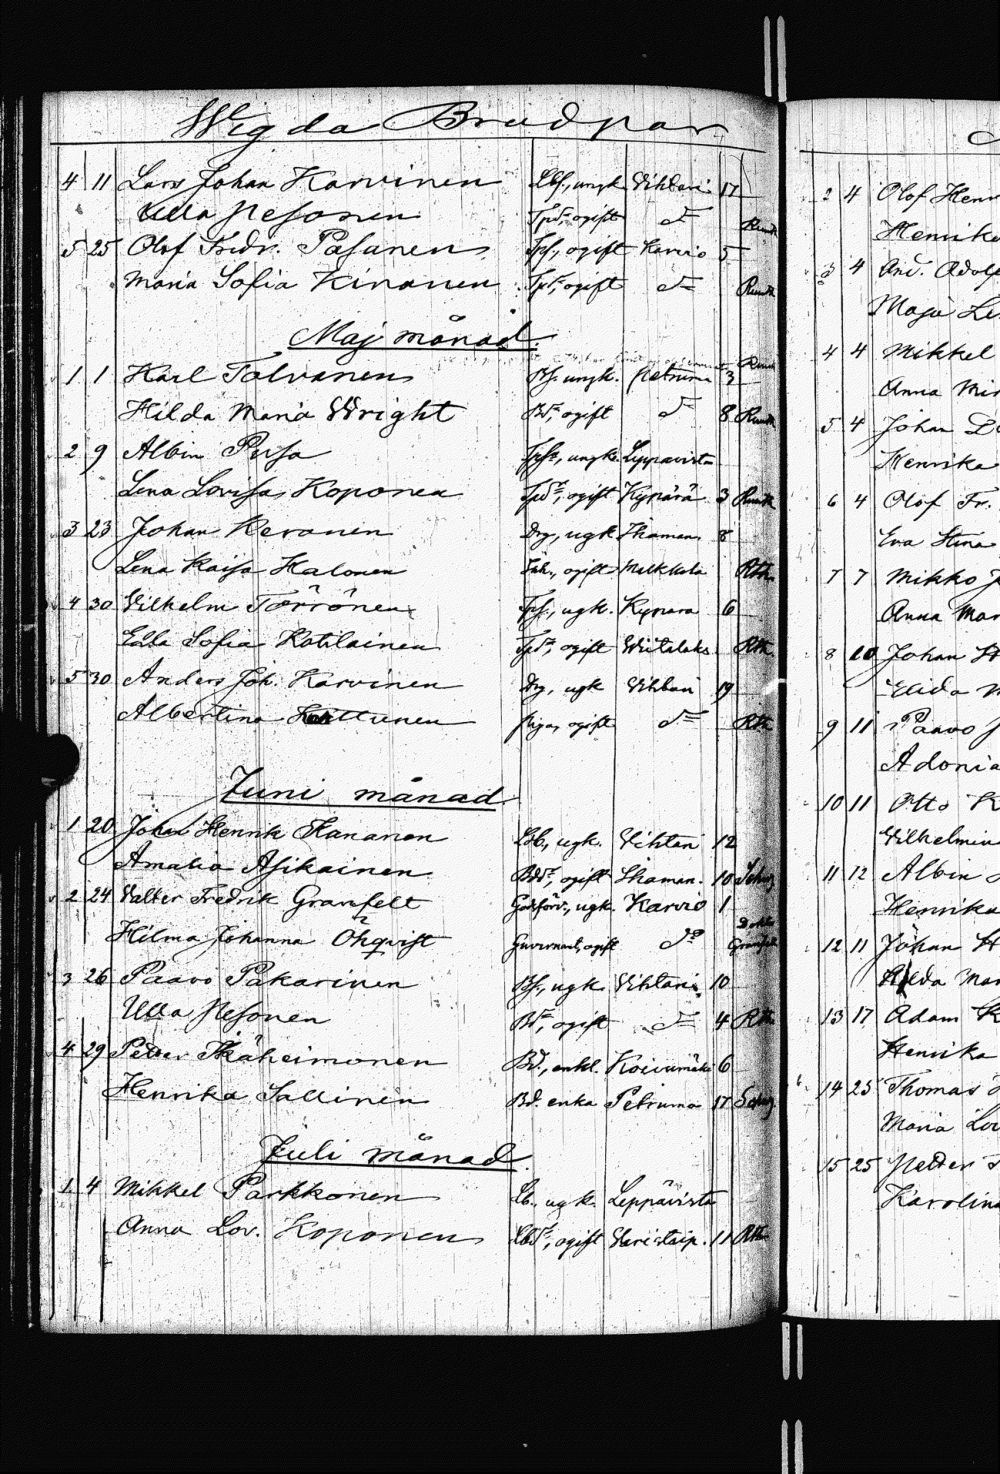 Wigda Brudpar
4 11 Lars Johan Karvinen Lbf., ungk. Vihtari 17
Ulla Nesonen Tpd., ogift d:o Runk
5 25 Olof Fredr. Pasanen Tpf., ogift Karvio 5
Maria Sofia Kinanen Tpd., ogift d:o Runk
Maj månad.
1 1 Karl Tolvanen Bf. ungk. Petruma 3
Hilda Maria Wright Bd., ogift d:o 8 Runk
2 9 Albin Pusa ungk. Leppävirta
Lena Lovisa Koponen Tpd., ogift Kypärä 3 Runk
3 23 Johan Kevanen Drg, ugk. Ihaman. 8
Lena Kaisa Halonen Inh., ogift Rth.
4 30 Vilhelm Törrönen Tpf., ugk. Kypärä 6
Edla Sofia Kotilainen Tpd., ogift Viitalaks. Rth.
5 30 Anders Joh. Karvinen Drg, ugk Vihtari 19
Albertina Huttunen piga, ogift d:o Rth
Juni månad
1 20 Johan Henrik Hananen Lbf., ugk. Vihtari 12
Amalia Asikainen Bdr., ogift Ihaman. 10
2 24 Valter Fredrik Granfelt Godsförv., ugk. Karvio 1
Hilma Johanna Öhqvist Guvernant, ogift d:o Granfelt
3 26 Paavo Pakarinen Bf., ugk Vihtari 10
Ulla Nesonen Bd., ogift d:o 4 Rth
4 29 Petter Räheimonen Bd., enkl. Koivumäki 6
Henrika Sallinen Bd. enka Petruma 17
Juli månad.
1 4 Mikkel Parkkonen Lb., ugk. Leppävirta
Anna Lov. Koponen Lbd., ogift Varistaip. 11 Rth
2 4 Olof Henr
Henrika
3 4 And. Adolf
Maja Le
4 4 Mikkel
Anna Mi
5 4 Johan
Henrika
6 4 Olof Fr.
Eva Stina
7 7 Mikko
Anna Mar
8 10 Johan H
Elida
9 11 Paavo
Adonia
10 11 Otto K
Vilhelmin
11 12 Albin
Henrika
12 11 Johan H
Alda Mar
13 17 Adam K
Henrika
14 25 Thomas
Maria Lov
15 25 Petter
Karolina